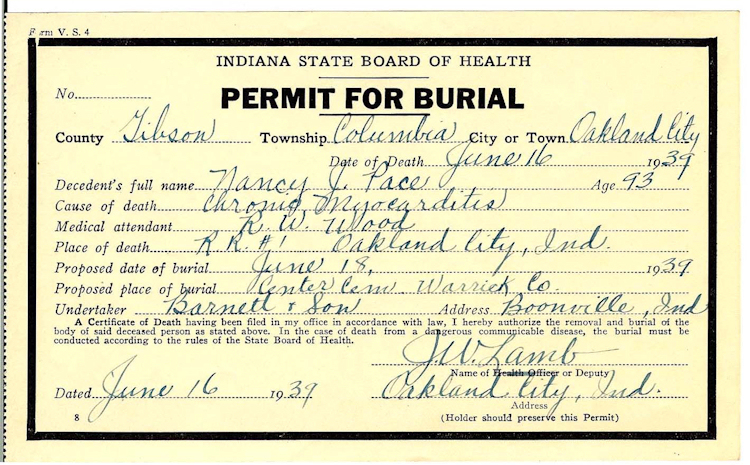 Form V. S. 4
INDIANA STATE BOARD OF HEALTH
No.
PERMIT FOR BURIAL
County Gibson Township Columbia City or Town Oakland City
Date of Death June 16 1939
Decedent's full name Nancy J. Pace Age 93
Cause of death Chronic Myocarditis
Medical attendant R. W. Wood
Place of death R R. #1 Oakland City, Ind.
Proposed date of burial June 18, 1939
Proposed place of burial Center Cem Warrick Co.
Undertaker Barnett & Son Address Boonville, Ind
A Certificate of Death having been filed in my office in accordance with law, I hereby authorize the removal and burial of the
body of said deceased person as stated above. In the case of death from a dangerous communicable disease, the burial must be
conducted according to the rules of the State Board of Health.
J. W. Lamb
Name of Health Officer or Deputy
Dated June 16 1939 Oakland City, Ind.
Address
8 (Holder should preserve this Permit)